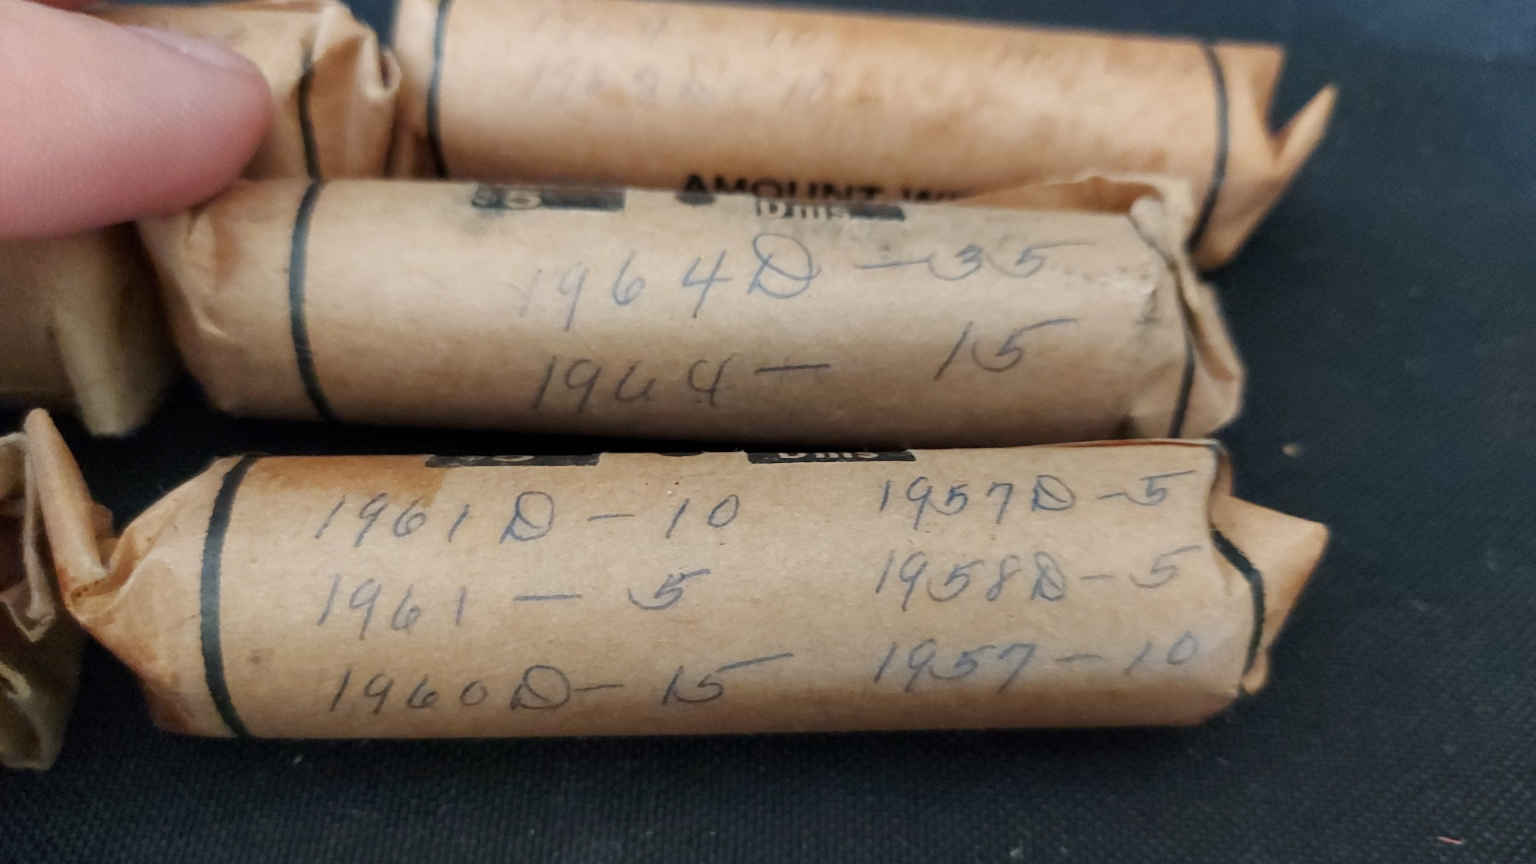 AMOUNT
Dms
1964D - 35
1964 - 15
Dms
1961D - 10
1961 - 5
1960D - 15
1957D - 5
1958D - 5
1957 - 10